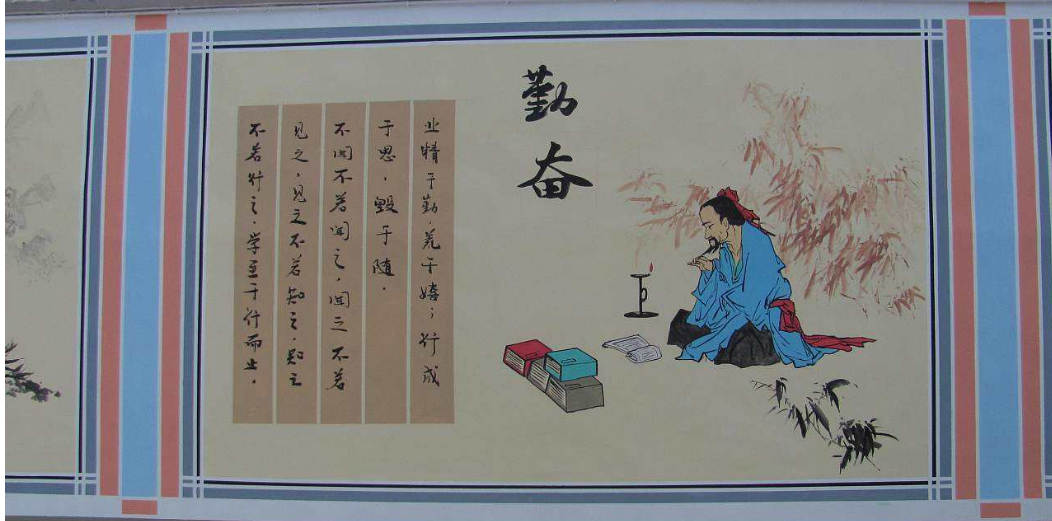 勤奋
业精于勤，荒于嬉；行成
于思，毁于随。
不闻不若闻之，闻之不若
见之，见之不若知之，知之
不若行之，学至于行而止。